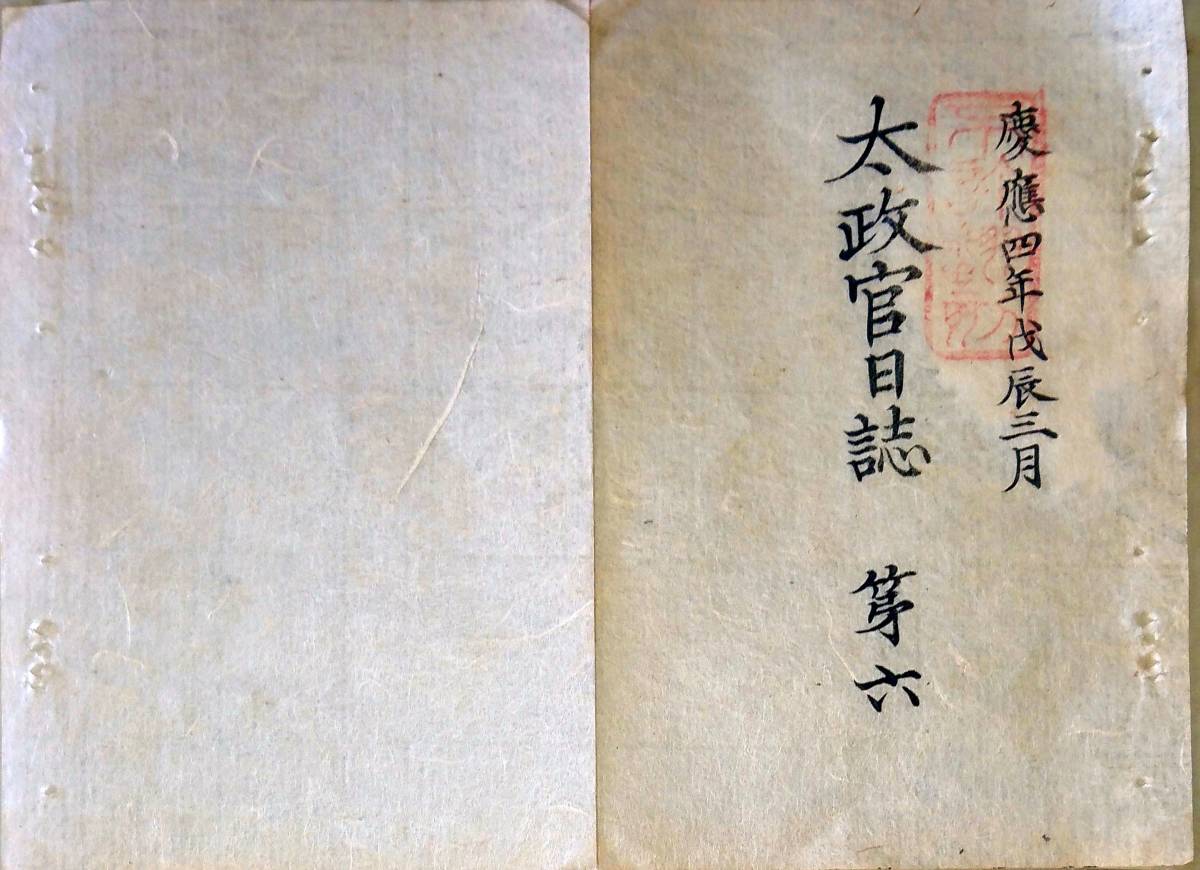 慶應四年戊辰三月
太政官日誌　第六